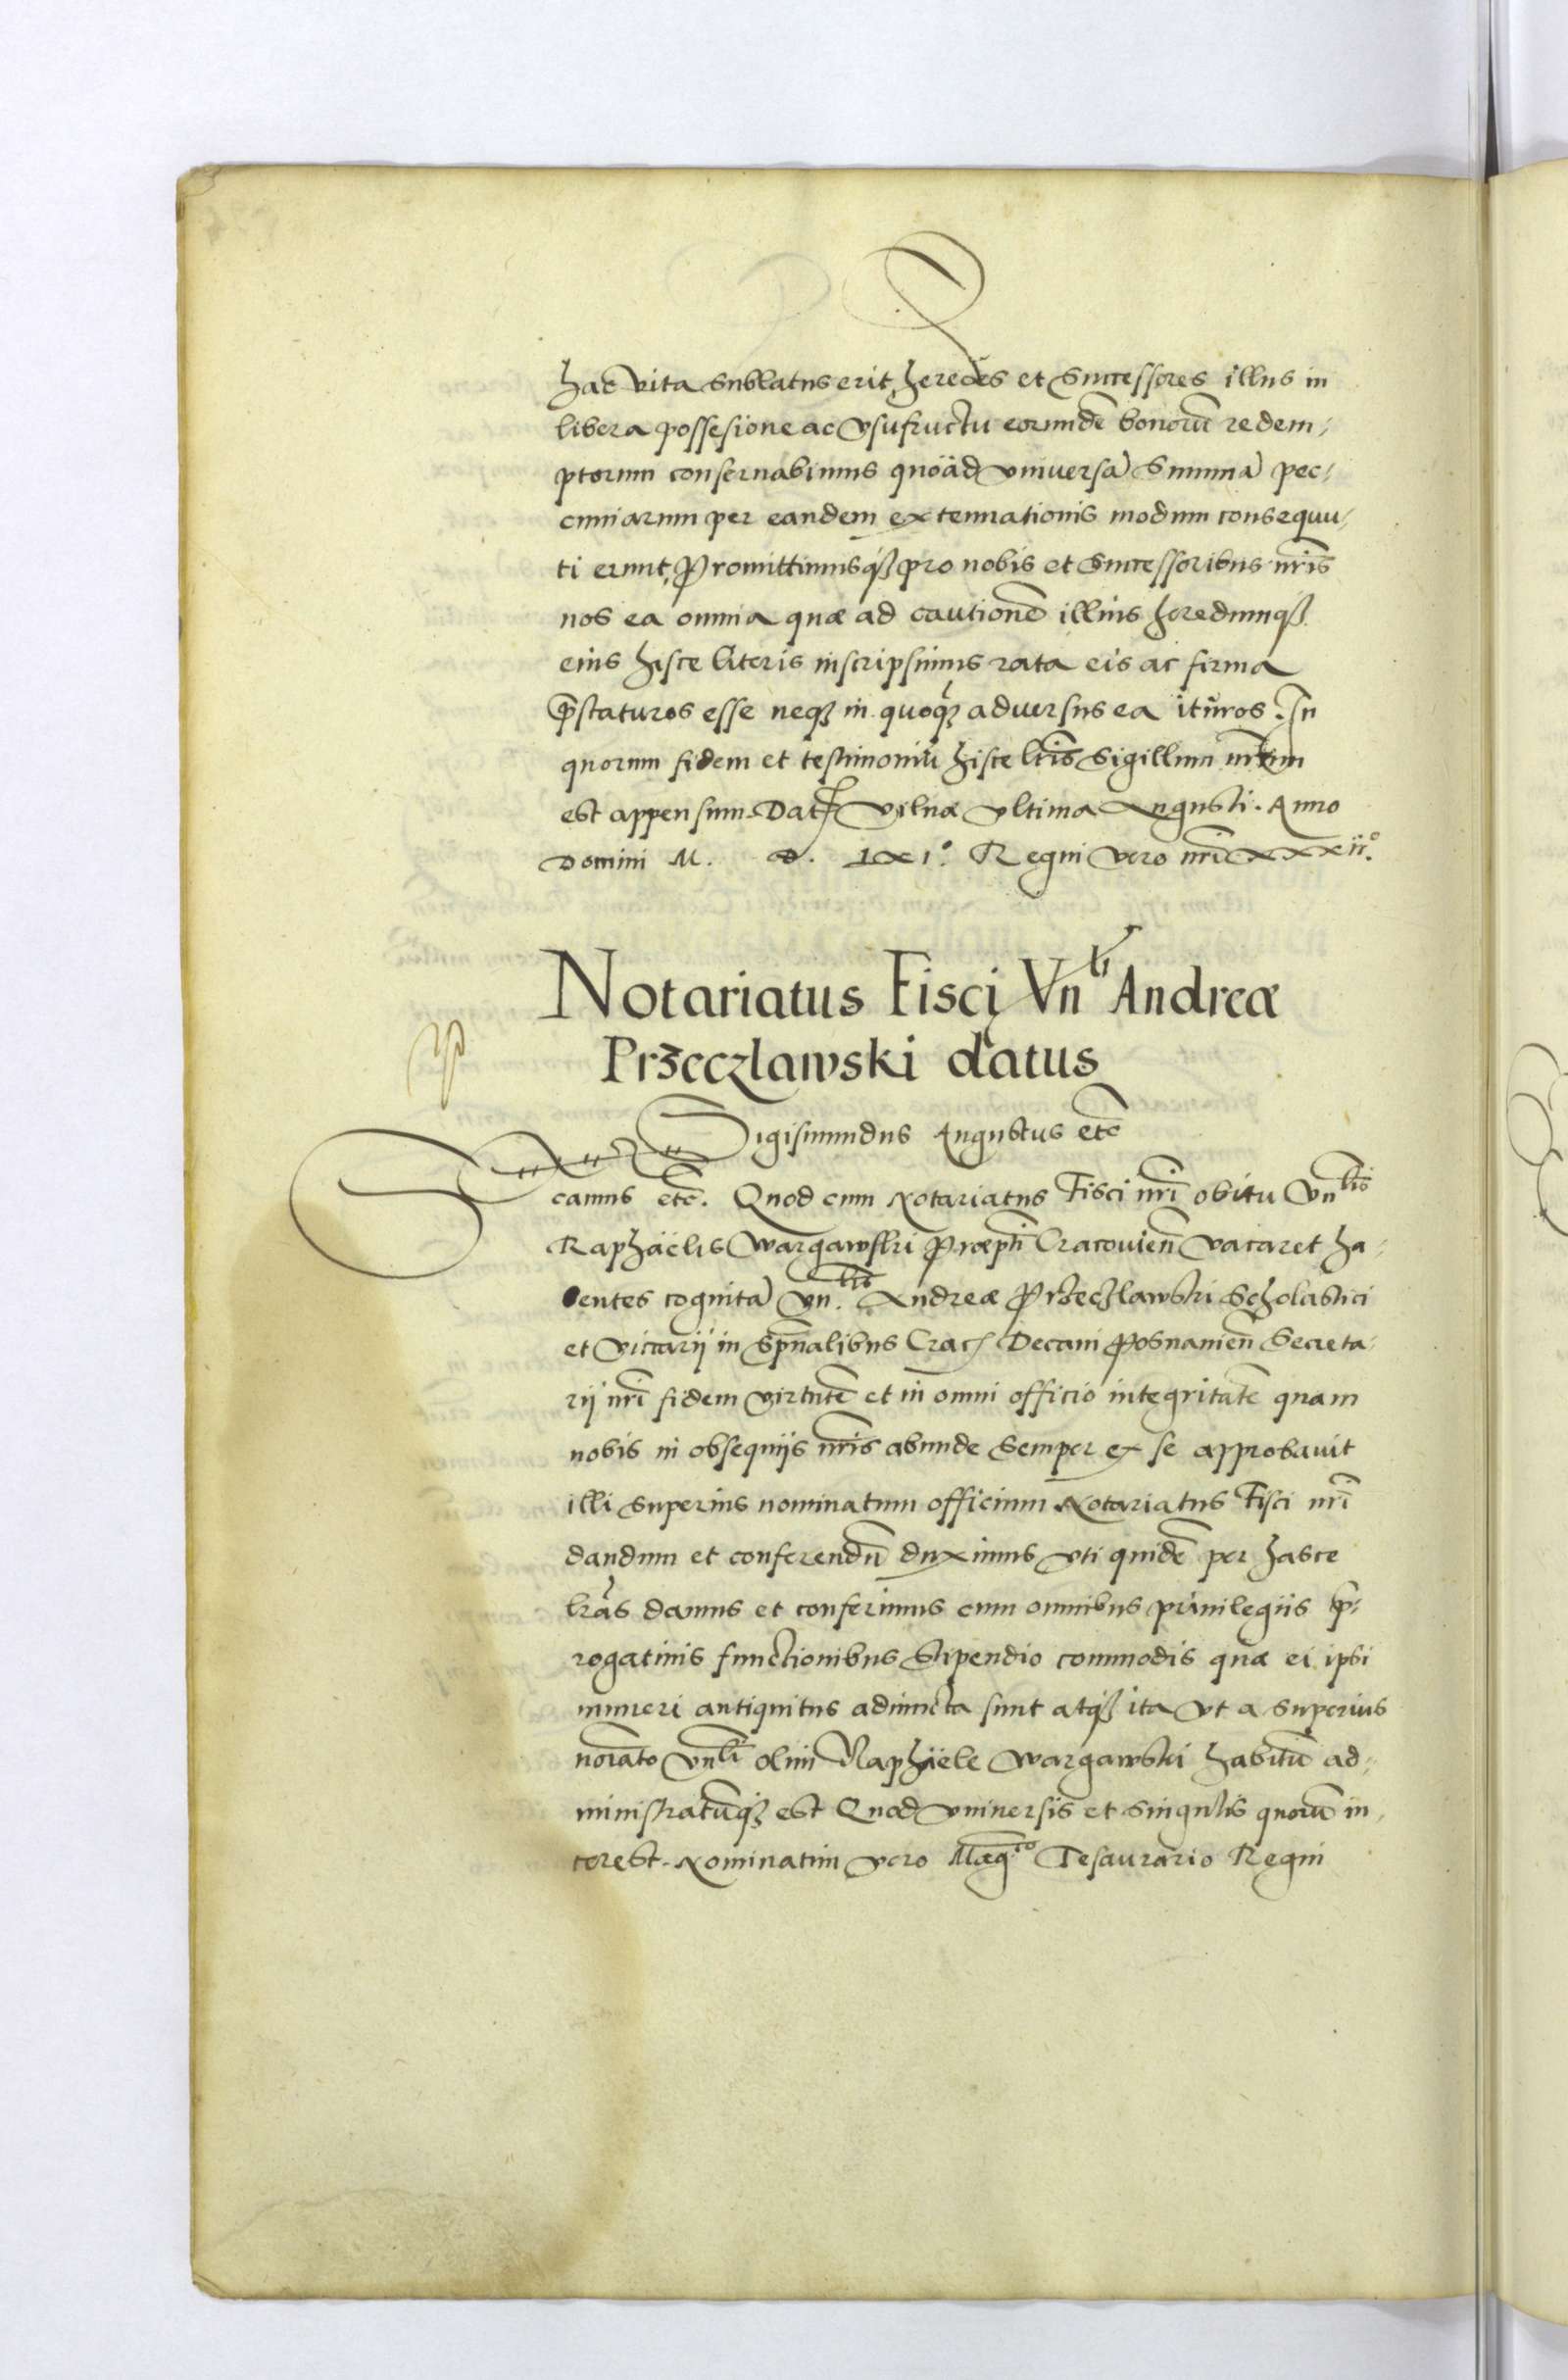 hac vita sublatus erit, heredes et Successores illius in
libera possesione ac vsufructu eorundē bonorū redem,
ptorum conseruabimus quoad vniversā Summā pec,
cuniarum per eandem extenuationis modum consequu,
ti erunt, Promittimusqȝ pro nobis et Successoribus nr̄is
nos ea omnia quæ ad cautionē illius heredumqȝ
eius hisce literis inscripsimus rata eis ac firma
p̄staturos esse neqȝ in quoqȝ adversus ea ituros. In
quorum fidem et testimoniū hisce lr̄is Sigillum nr̄um
est appensum. Dat Vilnæ vltima Augusti. Anno
Domini M. D. LXI°. Regni vero nr̄i xxxii°.
Notariatus Fisci Vnlis Andreæ
Przeczlawski datus
Sigismundus Augustus etc̄
camus etc̄. Quod cum Notariatus Fisci nr̄i obitu Vnlis
Raphäelis Wargawski Præpti Cracovien̄ vacaret ha,
bentes cognitā Vn.lis Andreæ Przeczlawski Scholastici
et Viccarij in Sp̄ualibus Crac Decani Posnanien̄ Secreta,
rij nr̄i fidem virtutē et in omni officio integritatē quam
nobis in obsequijs nr̄is abunde Semper ex se approbavit
illi Superius nominatum officium Notariatus Fisci nr̄i
dandum et conferendū duximus vti quidē per hasce
lr̄as damus et conferimus cum omnibus priuilegiis p̄,
rogatiuis functionibus Stipendio commodis quæ ei ipsi
muneri antiquitus adiuncta sunt atqȝ ita vt a Superius
noīato Vnli olim Raphäele Wargawski habitū ad,
ministratūqȝ est Quod vniuersis et Singulis quorū in,
terest. Nominatim vero Mag.co Tesaurario Regni